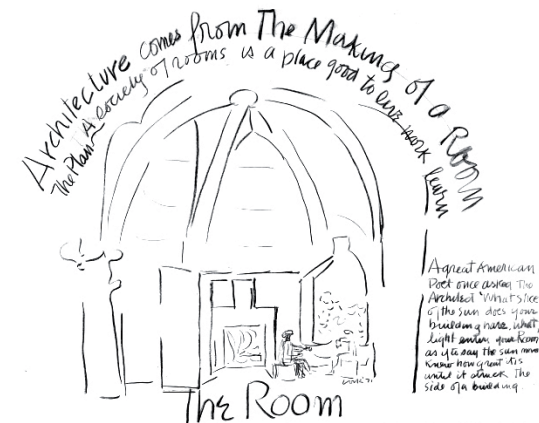 Architecture comes from The Making of a Room
The Plan A society of rooms is a place good to live work learn
A great American
Poet once asked The
Architect 'What slice
of the sun does your
building have, what
light enters your Room
as if to say the sun never
knew how great it is
until it struck the
side of a building.
The Room